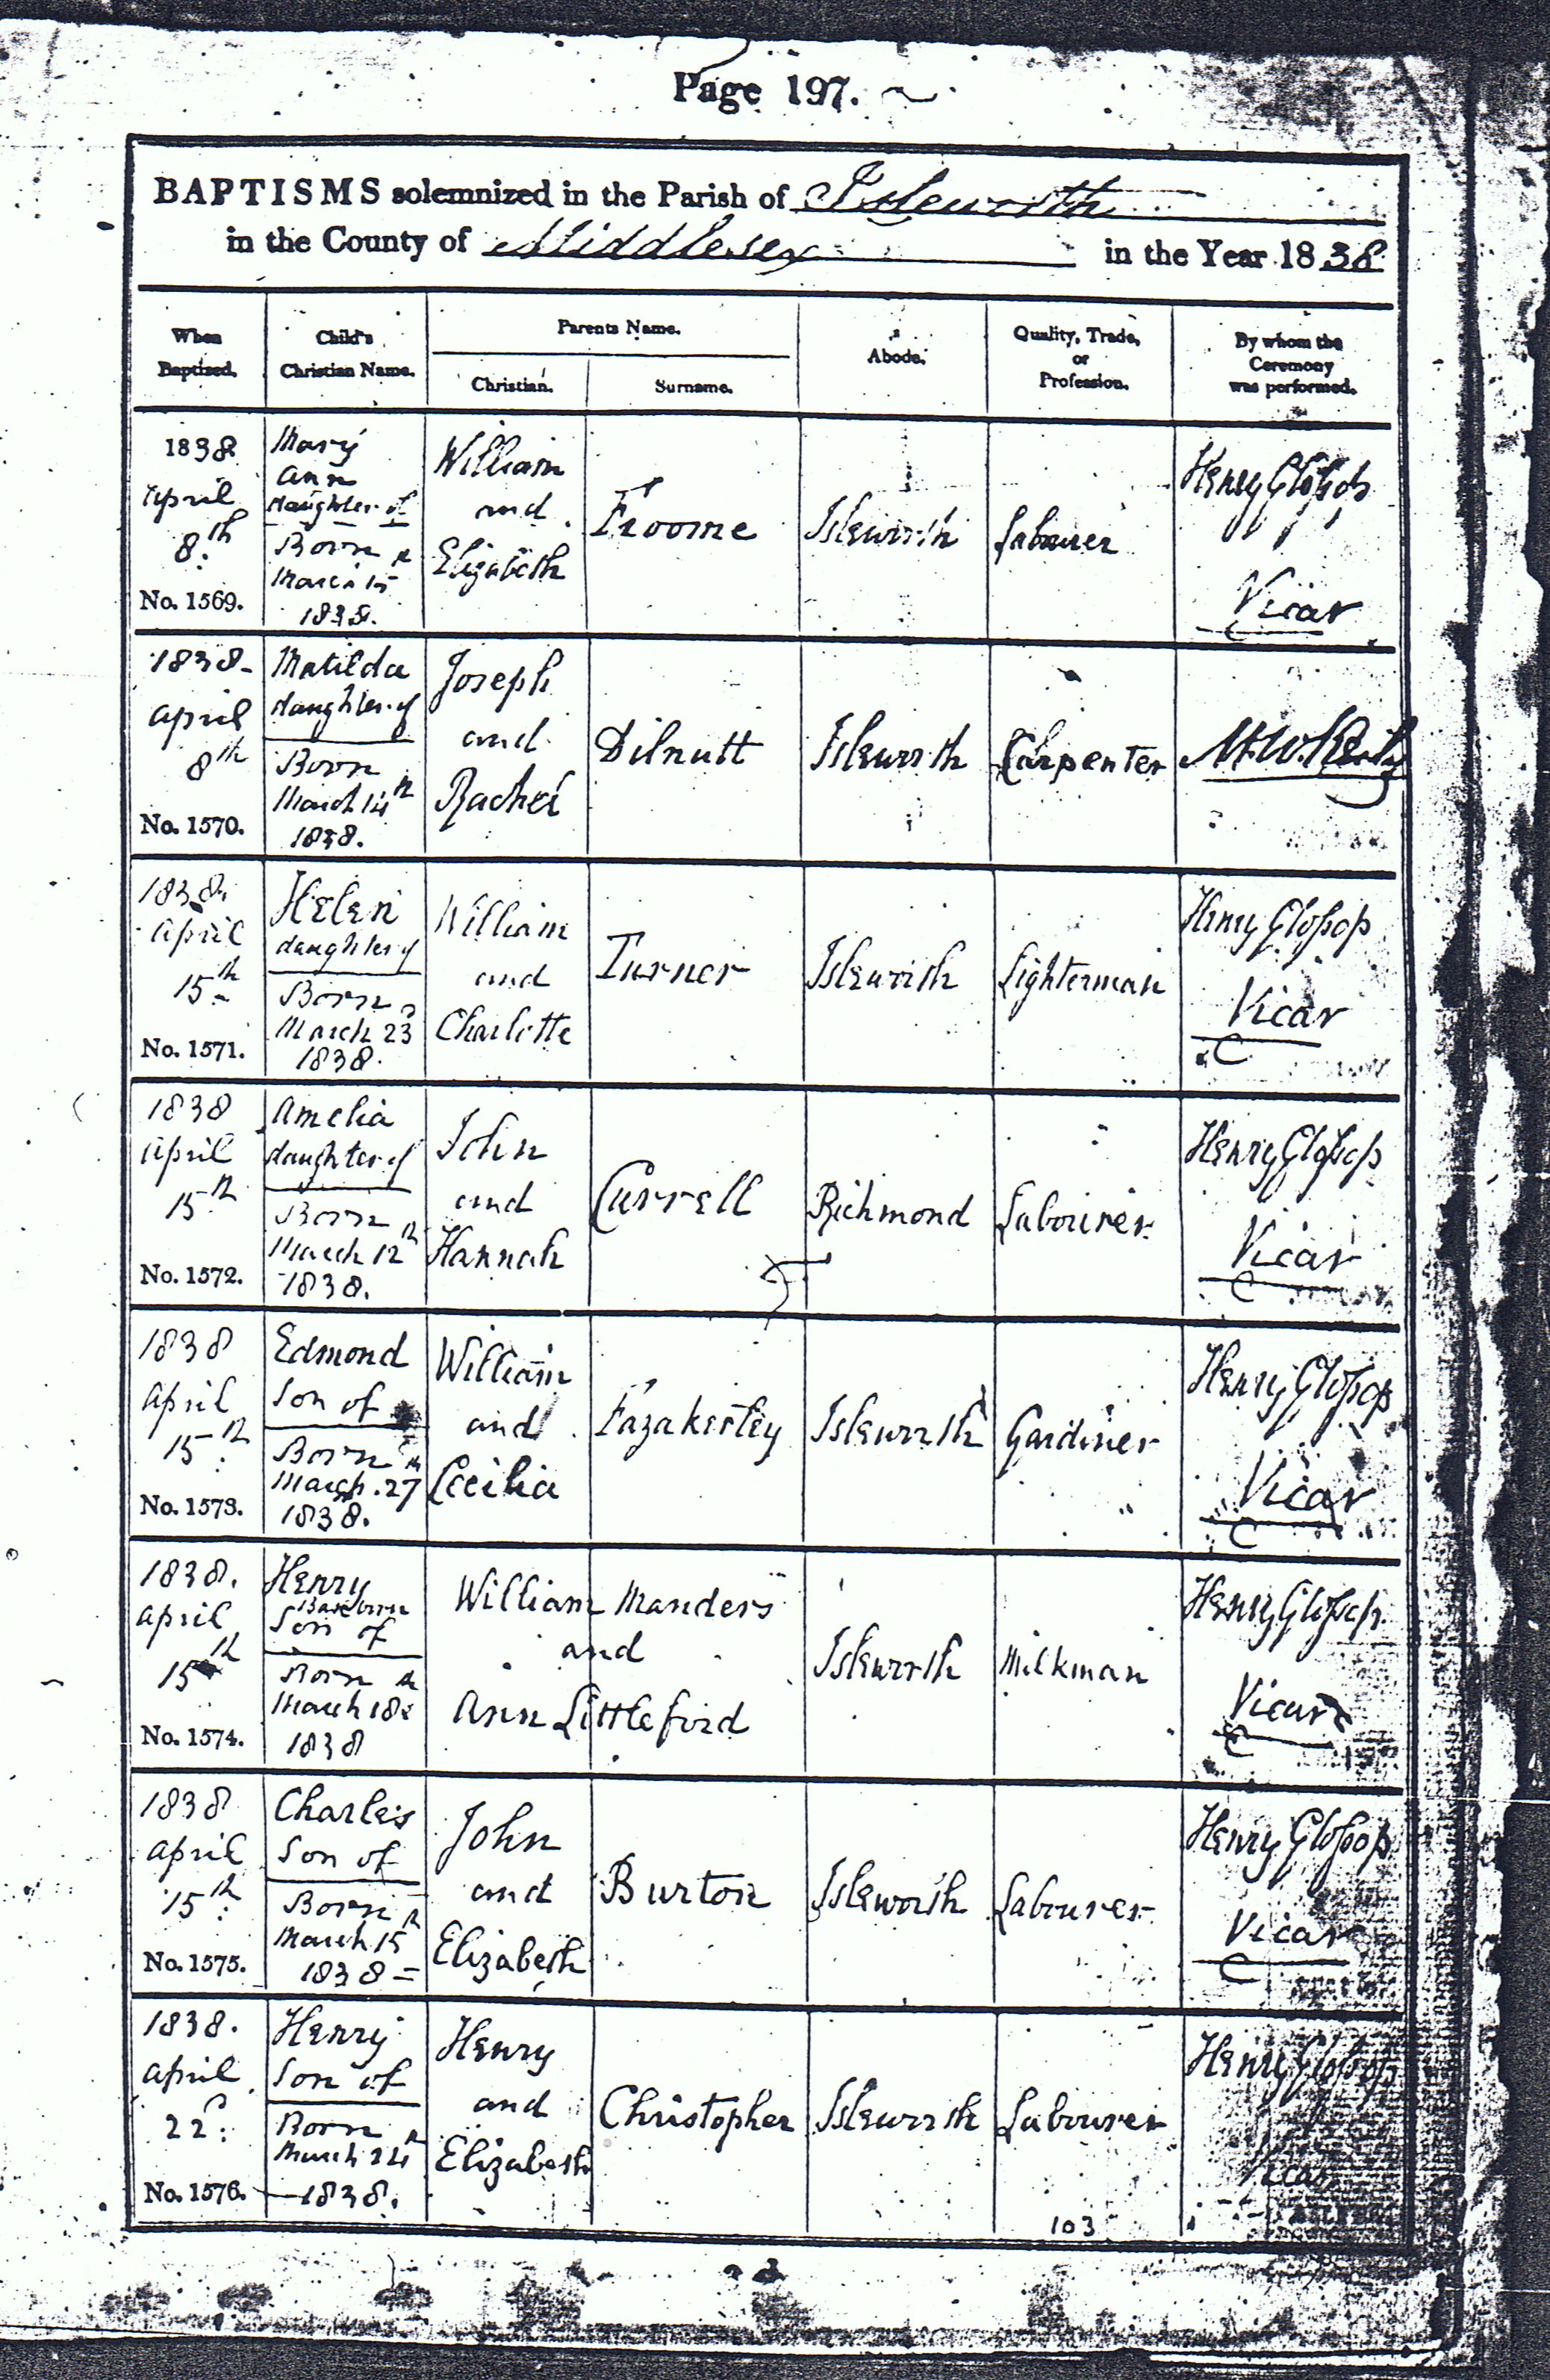 Page 197.
BAPTISMS solemnized in the Parish of Isleworth
in the County of Middlesex in the Year 1838
When Baptized.
Child's Christian Name.
Parents Name.
Christian.
Surname.
Abode.
Quality, Trade, or Profession.
By whom the Ceremony was performed.
1838
April
8th
No. 1569.
Mary
Ann
daughter of
Born
March 15
1838.
William
and
Elizabeth
Froome
Isleworth
Labourer
Henry Glossop
Vicar
1838
April
8th
No. 1570.
Matilda
daughter of
Born
March 14th
1838.
Joseph
and
Rachel
Dilnutt
Isleworth
Carpenter
1838.
April
15th
No. 1571.
Helen
daughter of
Born
March 23
1838.
William
and
Charlotte
Turner
Isleworth
Lighterman
Henry Glossop
Vicar
1838
April
15th
No. 1572.
Amelia
daughter of
Born
March 12th
1838.
John
and
Hannah
Currell
Richmond
Labourer
Henry Glossop
Vicar
1838
April
15th
No. 1573.
Edmond
Son of
Born
March 27th
1838.
William
and
Cecilia
Fazakerley
Isleworth
Gardiner
Henry Glossop
Vicar
1838.
April
15th
No. 1574.
Henry
Base born
Son of
Born
March 18th
1838
William Manders
and
Ann Littleford
Isleworth
Milkman
Henry Glossop
Vicar
1838
April
15th
No. 1575.
Charles
Son of
Born
March 15th
1838
John
and
Elizabeth
Burton
Isleworth
Labourer
Henry Glossop
Vicar
1838.
April
22d
No. 1576.
Henry
Son of
Born
March 24th
1838.
Henry
and
Elizabeth
Christopher
Isleworth
Labourer
Henry Glossop
Vicar
103